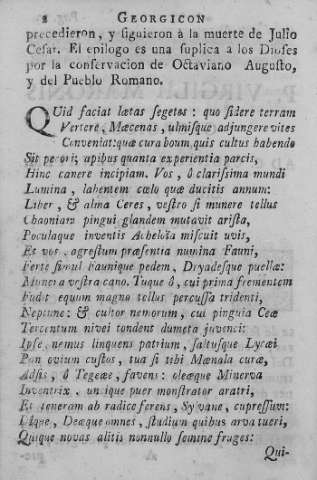 2 GEORGICON
precedieron, y siguieron à la muerte de Julio
Cesar. El epilogo es una suplica a los Dioses
por la conservacion de Octaviano Augusto,
y del Pueblo Romano.
QUid faciat lætas segetes: quo sidere terram
Vertere, Mæcenas, ulmisque adjungere vites
Conveniat: quæ cura boum, quis cultus habendo
Sit pecori, apibus quanta experientia parcis,
Hinc canere incipiam. Vos, ô clarissima mundi
Lumina, labentem cœlo quæ ducitis annum:
Liber, & alma Ceres, vestro si munere tellus
Chaoniam pingui glandem mutavit arista,
Poculaque inventis Acheloia miscuit uvis,
Et vos, agrestum præsentia numina Fauni,
Ferte simul Faunique pedem, Dryadesque puellæ:
Munera vestra cano. Tuque ô, cui prima frementem
Fudit equum magno tellus percussa tridenti,
Neptune: & cultor nemorum, cui pinguia Ceæ
Tercentum nivei tondent dumeta juvenci:
Ipse, nemus linquens patrium, saltusque Lycæi
Pan ovium custos, tua si tibi Mænala curæ,
Adsis, ô Tegeæe, favens: oleæque Minerva
Inventrix, unique puer monstrator aratri,
Et teneram ab radice ferens, Sylvane, cupressum:
Dîque, Deæque omnes, studium quibus arva tueri,
Quique novas alitis nonnullo semine fruges:
Qui-